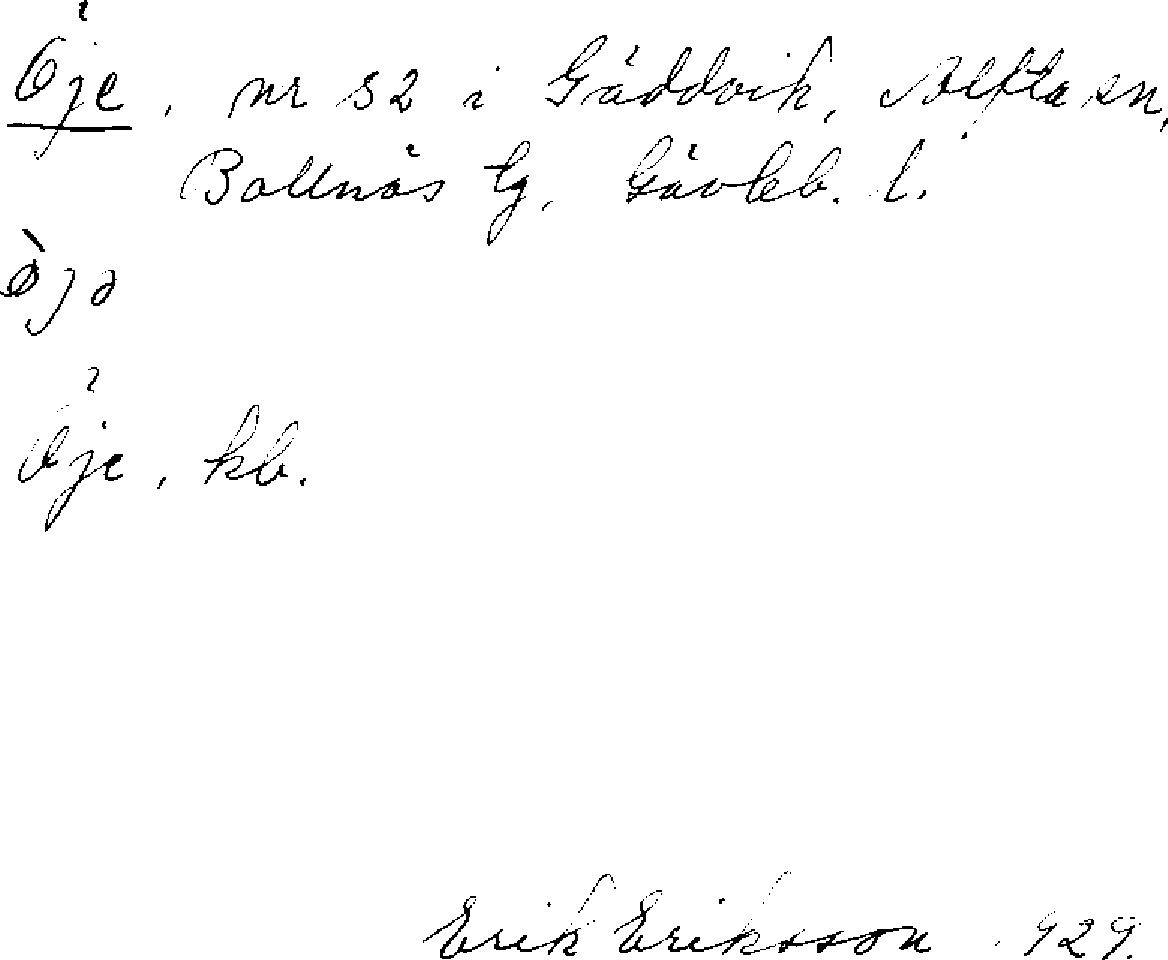 Öje, nr 52 i Gäddvik, Alfta sn,
Bollnäs tg, Gävleb. l.
ò̀jə
Öje, kb.
Erik Eriksson 1929.